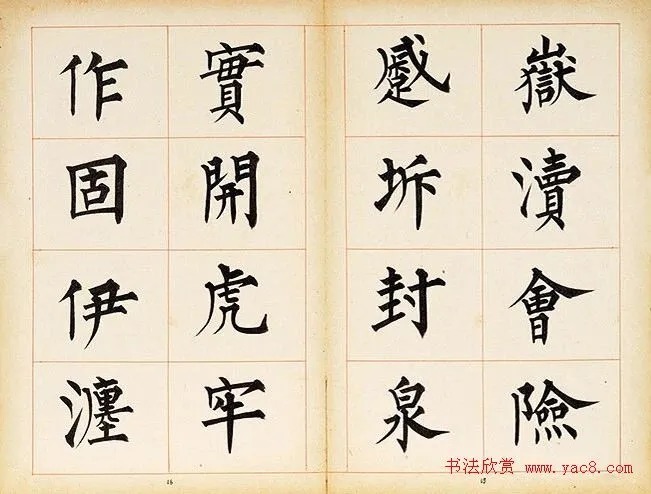 嶽瀆會險
蹙坼封泉
實開虎牢
作固伊瀍
16
书法欣赏 www.yac8.com